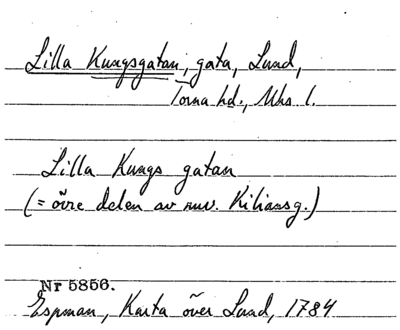 Lilla Kungsgatan, gata, Lund,
Torna hd., Mhs l.
Lilla Kungs gatan
(= övre delen av nuv. Kiliansg.)
Nr 5856.
Espman, Karta över Lund, 1784